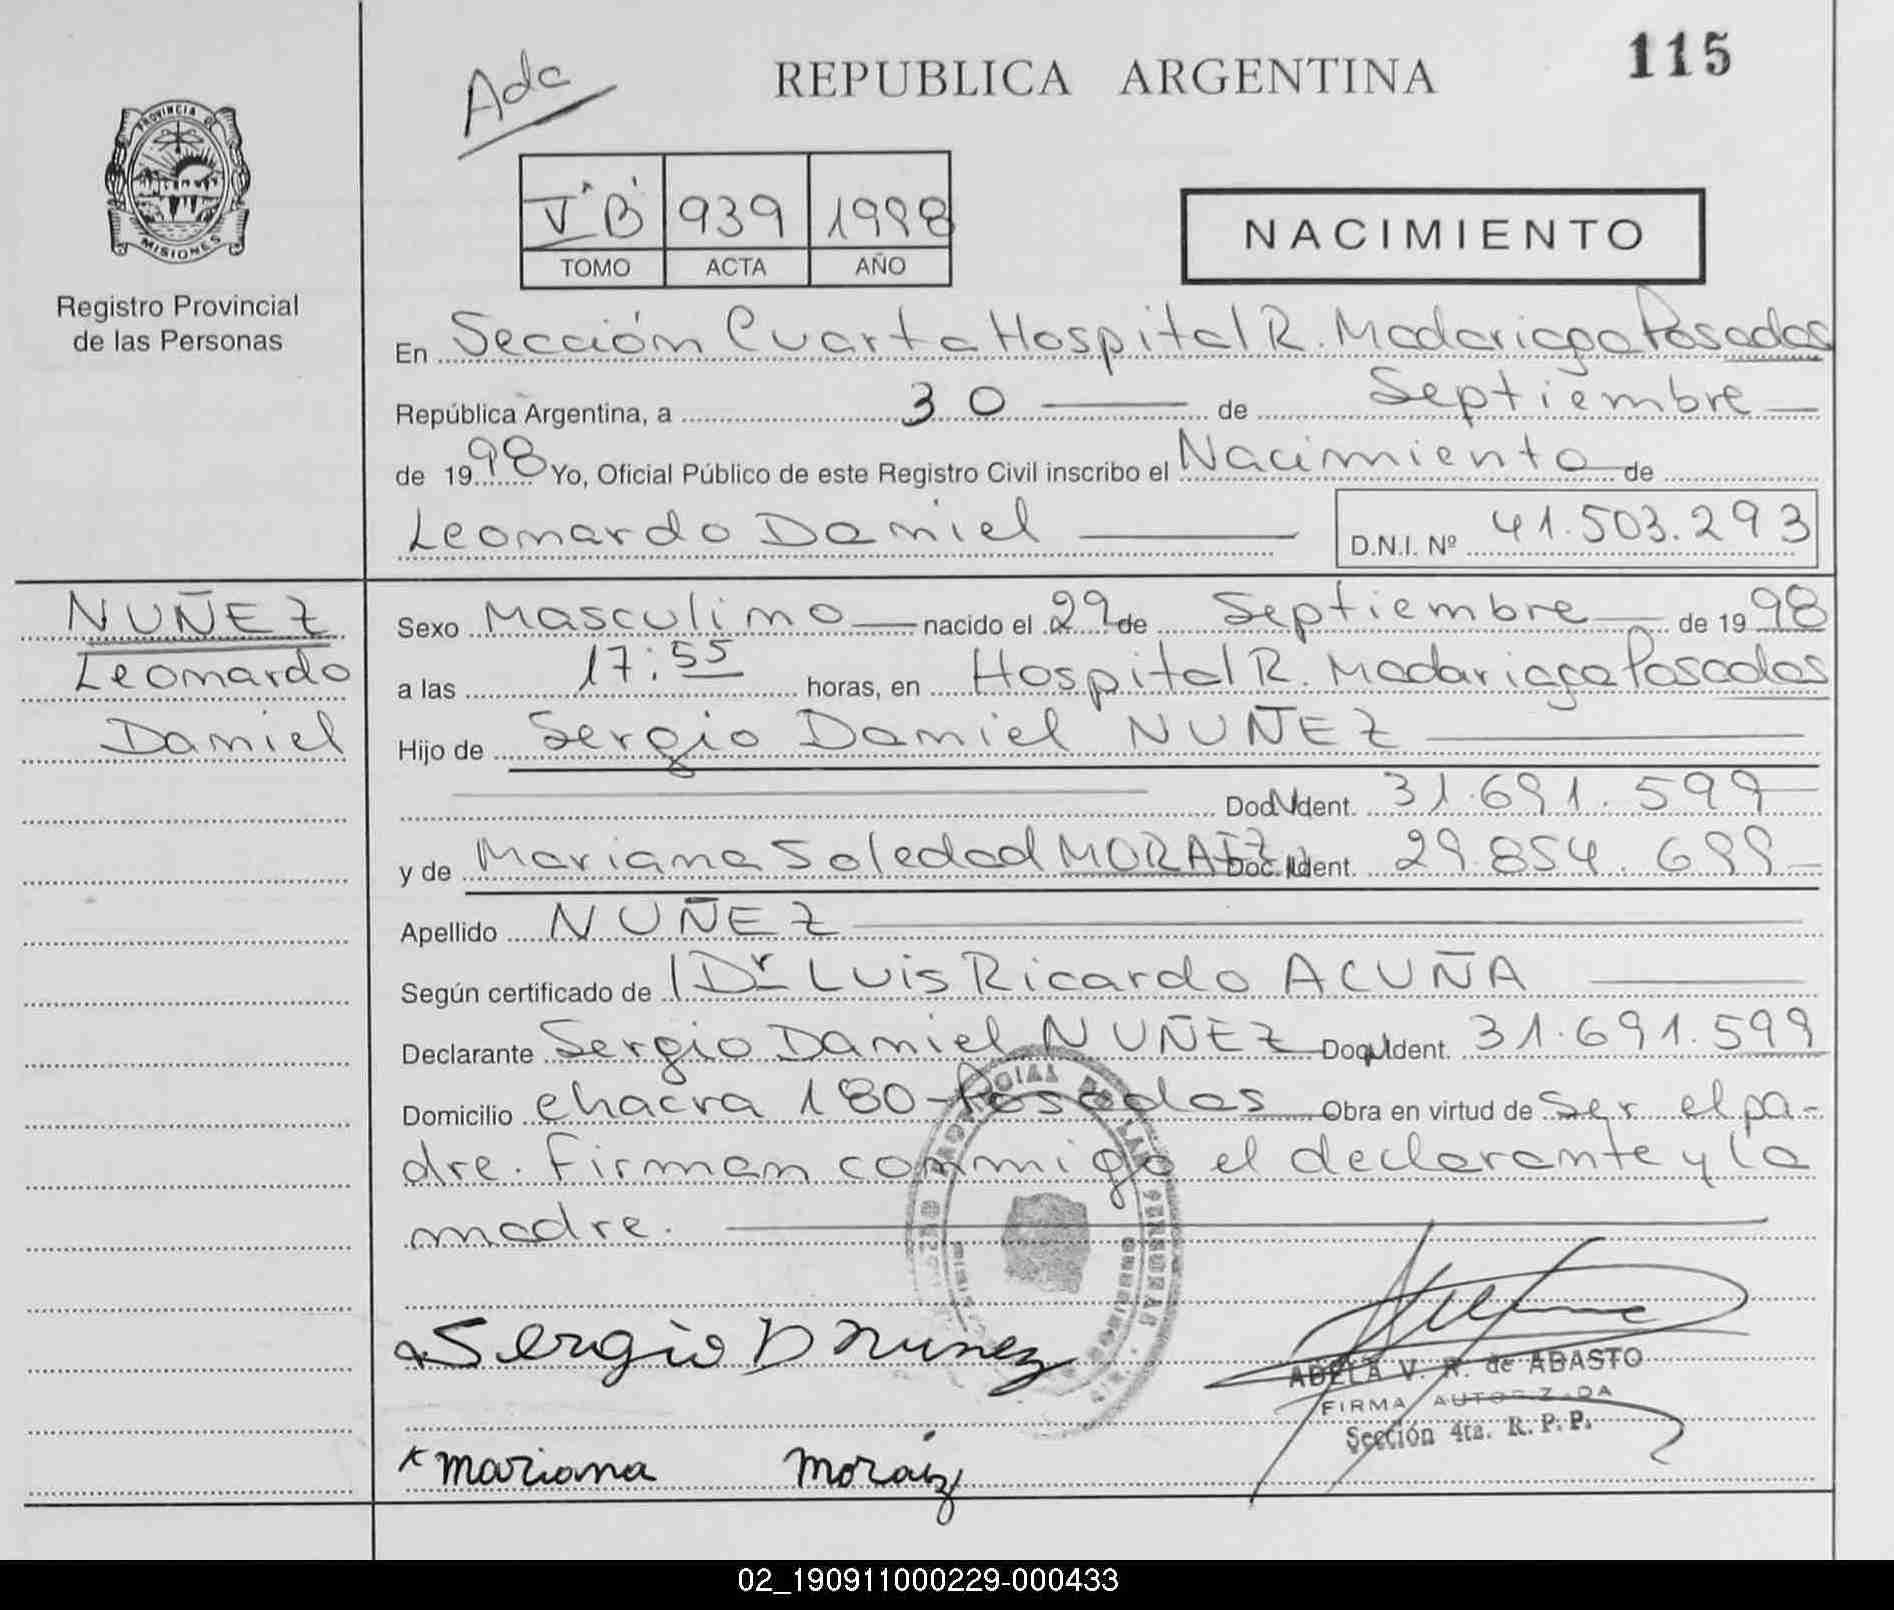 115
Ada
REPUBLICA ARGENTINA
PROVINCIA DE
MISIONES
Registro Provincial
de las Personas
V "B" 939 1998
TOMO ACTA AÑO
NACIMIENTO
En Sección Cuarta Hospital R. Madariaga Posadas
República Argentina, a 30 de Septiembre
de 1998 Yo, Oficial Público de este Registro Civil inscribo el Nacimiento de
Leonardo Daniel D.N.I. Nº 41.503.293
NUÑEZ
Leonardo
Daniel
Sexo Masculino nacido el 29 de Septiembre de 1998
a las 17:55 horas, en Hospital R. Madariaga Posadas
Hijo de Sergio Daniel NUÑEZ
Doc. Ident. 31.691.599
y de Mariana Soledad MORAIZ Doc. Ident. 29.854.699
Apellido NUÑEZ
Según certificado de Dr Luis Ricardo ACUÑA
Declarante Sergio Daniel NUÑEZ Doc. Ident. 31.691.599
Domicilio chacra 180-Posadas Obra en virtud de ser el pa-
dre. Firman conmigo el declarante y la
madre.
Sergio D Nunez
ADELA V. R. de ABASTO
FIRMA AUTORIZADA
Sección 4ta. R. P. P.
Mariana Moraiz
02_190911000229-000433